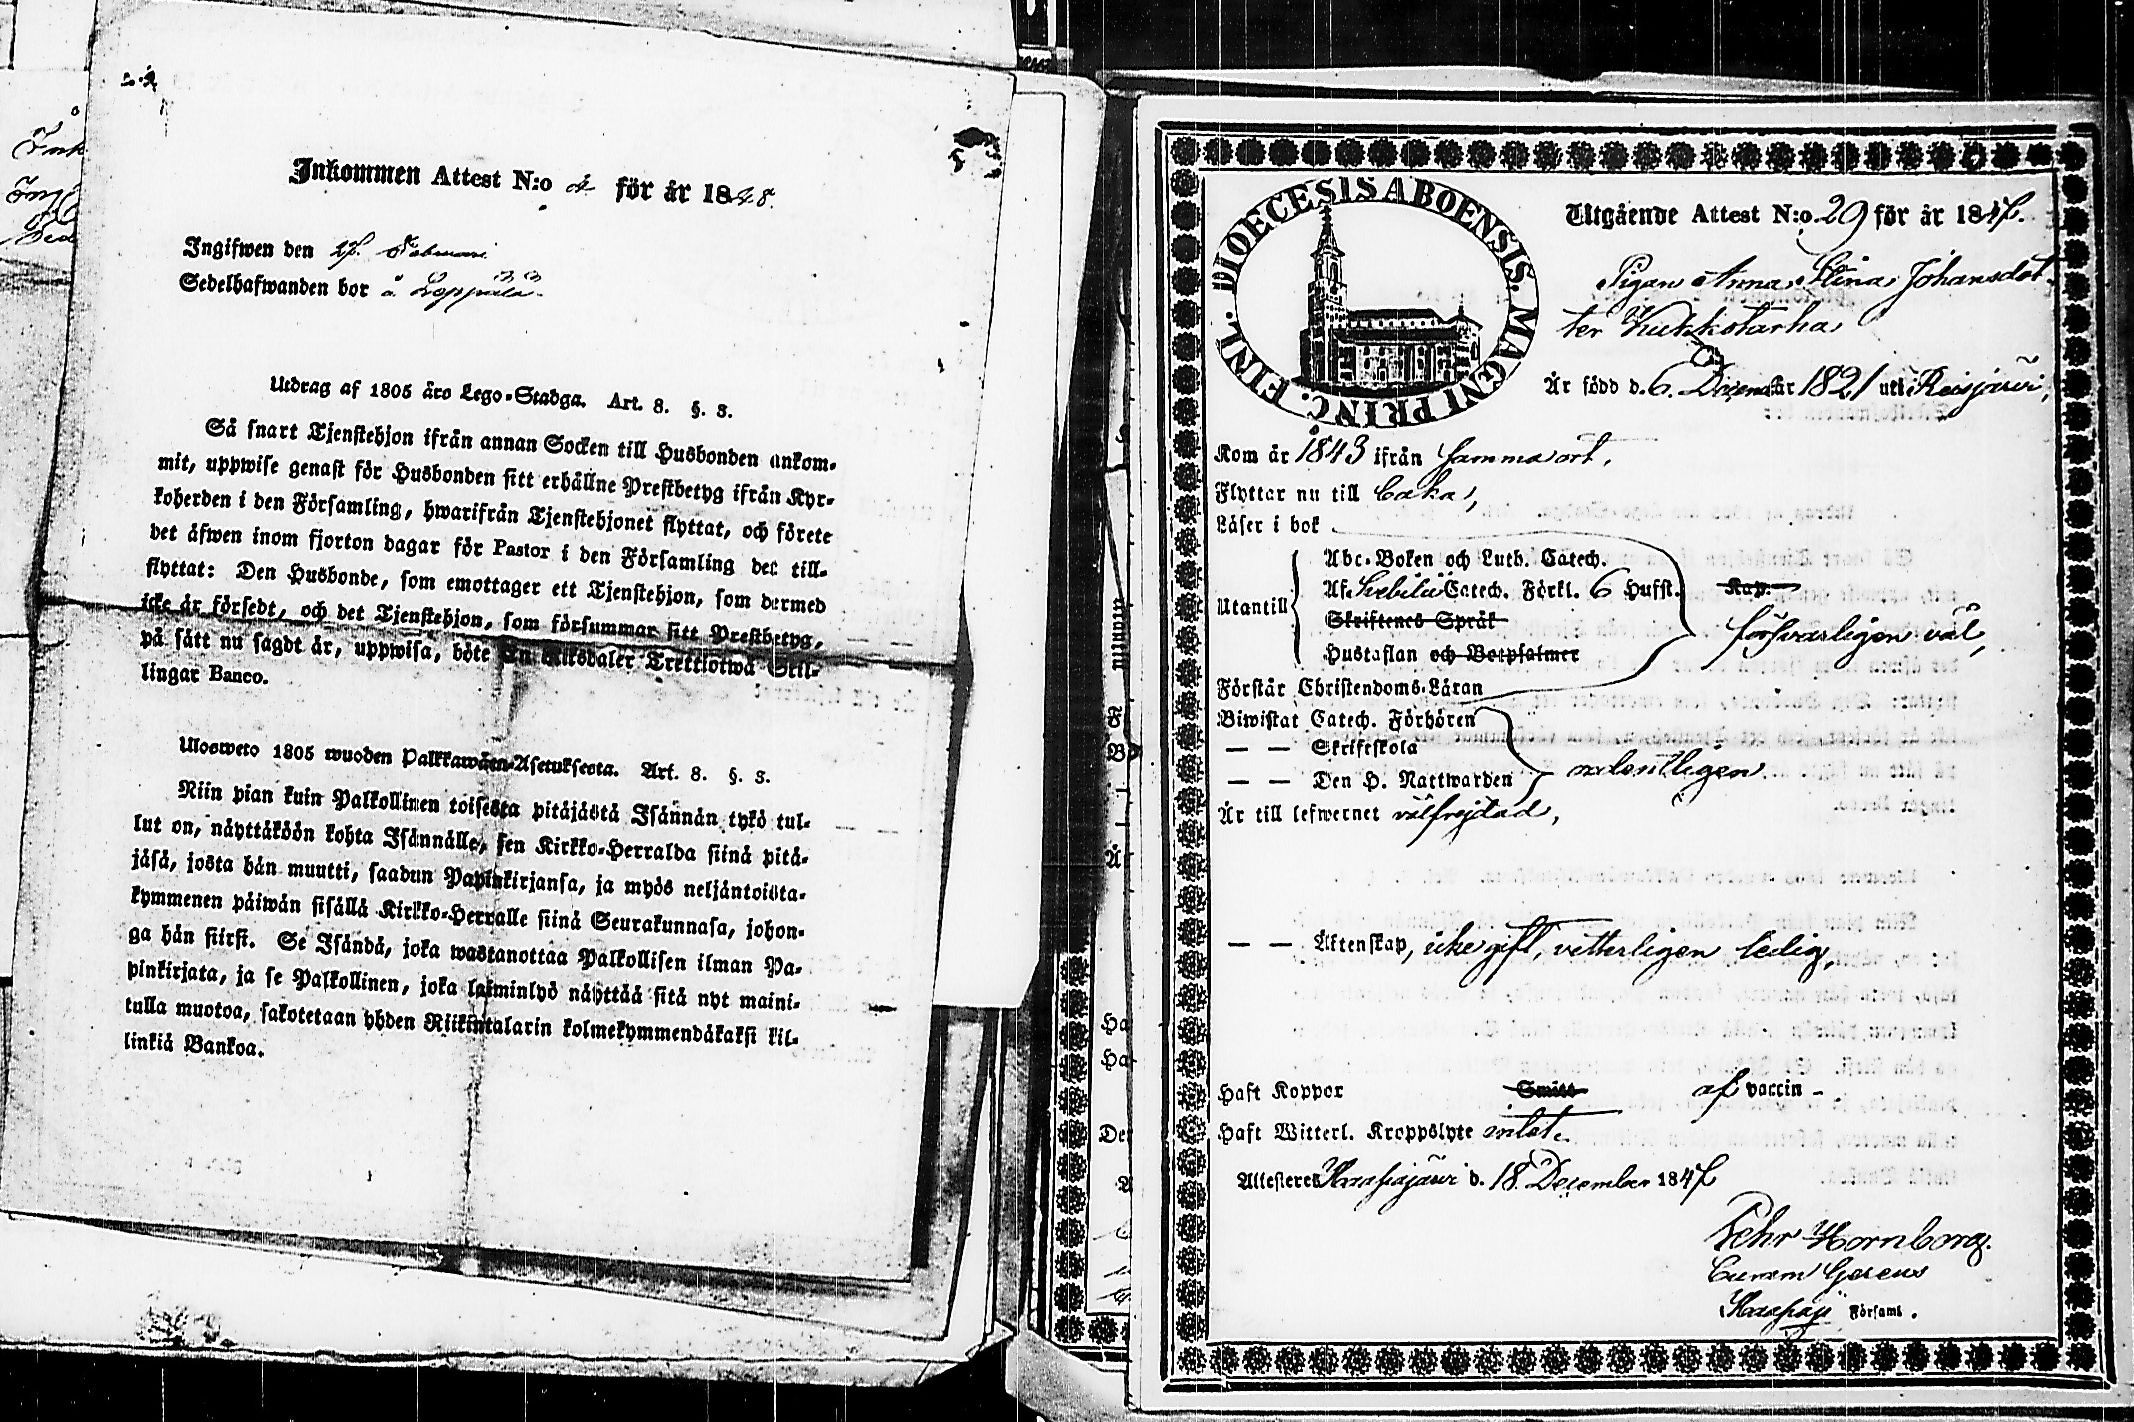 Inkommen Attest N:o 2 för år 1848.
Ingifwen den 27. Februari
Sedelhafwanden bor å Leppälä.
Utdrag af 1805 års Lego-Stadga. Art. 8. §. 3.
Så snart Tjenstehjon ifrån annan Socken till Husbonden ankom-
mit, uppwise genast för Husbonden sitt erhållne Prestbetyg ifrån Kyr-
koherden i den Församling, hwarifrån Tjenstehjonet flyttat, och förete
det äfwen inom fjorton dagar för Pastor i den Församling det till-
flyttat: Den Husbonde, som emottager ett Tjenstehjon, som dermed
icke är försedt, och det Tjenstehjon, som försummar sitt Prestbetyg,
på sätt nu sagdt är, uppwisa, böte En Riksdaler Trettiotwå Skil-
lingar Banco.
Ulosweto 1805 wuoden Palkkawäen-Asetuksesta. Art. 8. §. 3.
Niin pian kuin Palkollinen toisesta pitäjästä Isännän tykö tul-
lut on, näyttäköön kohta Isännälle, sen Kirkko-Herralda siinä pitä-
jäsä, josta hän muutti, saadun Papinkirjansa, ja myös neljäntoista-
kymmenen päiwän sisällä Kirkko-Herralle siinä Seurakunnasa, johon-
ga hän siirsi. Se Isändä, joka wastanottaa Palkollisen ilman Pa-
pinkirjata, ja se Palkollinen, joka laiminlyö näyttää sitä nyt maini-
tulla muotoa, sakotetaan yhden Riikintalarin kolmekymmendäkaksi kil-
linkiä Bankoa.
DIOECESIS ABOENSIS. MAGNI PRINC. FINL.
Utgående Attest N:o 29 för år 1847.
Pigan Anna Stina Johansdot-
ter Kukkotarha
Är född d. 6. Decemb år 1821 uti Reisjärvi,
Kom år 1843 ifrån samma ort.
Flyttar nu till
Läser i bok
Utantill
Abc-Boken och Luth. Catech.
Af Svebilii Catech. Förkl. 6 Hufst. Kap.
Skriftenes Språk
Hustaflan och Botpsalmer
försvarligen väl,
Förstår Christendoms-Läran
Biwistat Catech. Förhören
— — Skriftskola
— — Den H. Nattwarden
ordentligen
Är till lefwernet välfrejdad,
— — Äktenskap, icke gift, vetterligen ledig,
Haft Koppor af vaccin -
Haft Witterl. Kroppslyte intet.
Attesteres Haapajärvi d. 18. December 1847
Pehr Hornborg.
Curam Gerens
Haapaj. Församl.